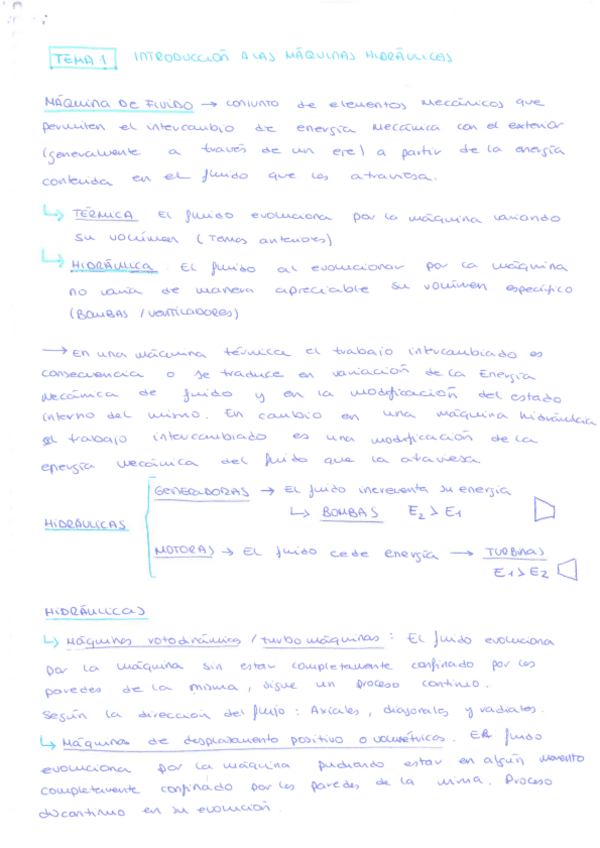 TEMA 1 INTRODUCCIÓN A LAS MÁQUINAS HIDRÁULICAS
MÁQUINA DE FLUIDO → conjunto de elementos mecánicos que
permiten el intercambio de energía mecánica con el exterior
(generalmente a través de un eje) a partir de la energía
contenida en el fluido que los atraviesa.
↳ TÉRMICA El fluido evoluciona por la máquina variando
su volúmen (Temas anteriores)
↳ HIDRÁULICA: El fluido al evolucionar por la máquina
no varía de manera apreciable su volúmen específico
(BOMBAS / VENTILADORES)
→ En una máquina térmica el trabajo intercambiado es
consecuencia o se traduce en variación de la Energía
Mecánica de fluido y en la modificación del estado
interno del mismo. En cambio en una máquina hidráulica
el trabajo intercambiado es una modificación de la
energía mecánica del fluido que la atraviesa.
GENERADORAS → El fluido incrementa su energía
↳ BOMBAS E2 > E1
HIDRÁULICAS
MOTORAS → EL fluido cede energía → TURBINAS
E1 > E2
HIDRÁULICAS
↳ Máquinas rotodinámicas / turbomáquinas: El fluido evoluciona
por la máquina sin estar completamente confinado por las
paredes de la misma, sigue un proceso continuo.
Según la dirección del flujo: Axiales, diagonales y radiales.
↳ Máquinas de desplazamiento positivo o volumétricas. El fluido
evoluciona por la máquina pudiendo estar en algún momento
completamente confinado por las paredes de la misma. Proceso
discontinuo en su evolución.